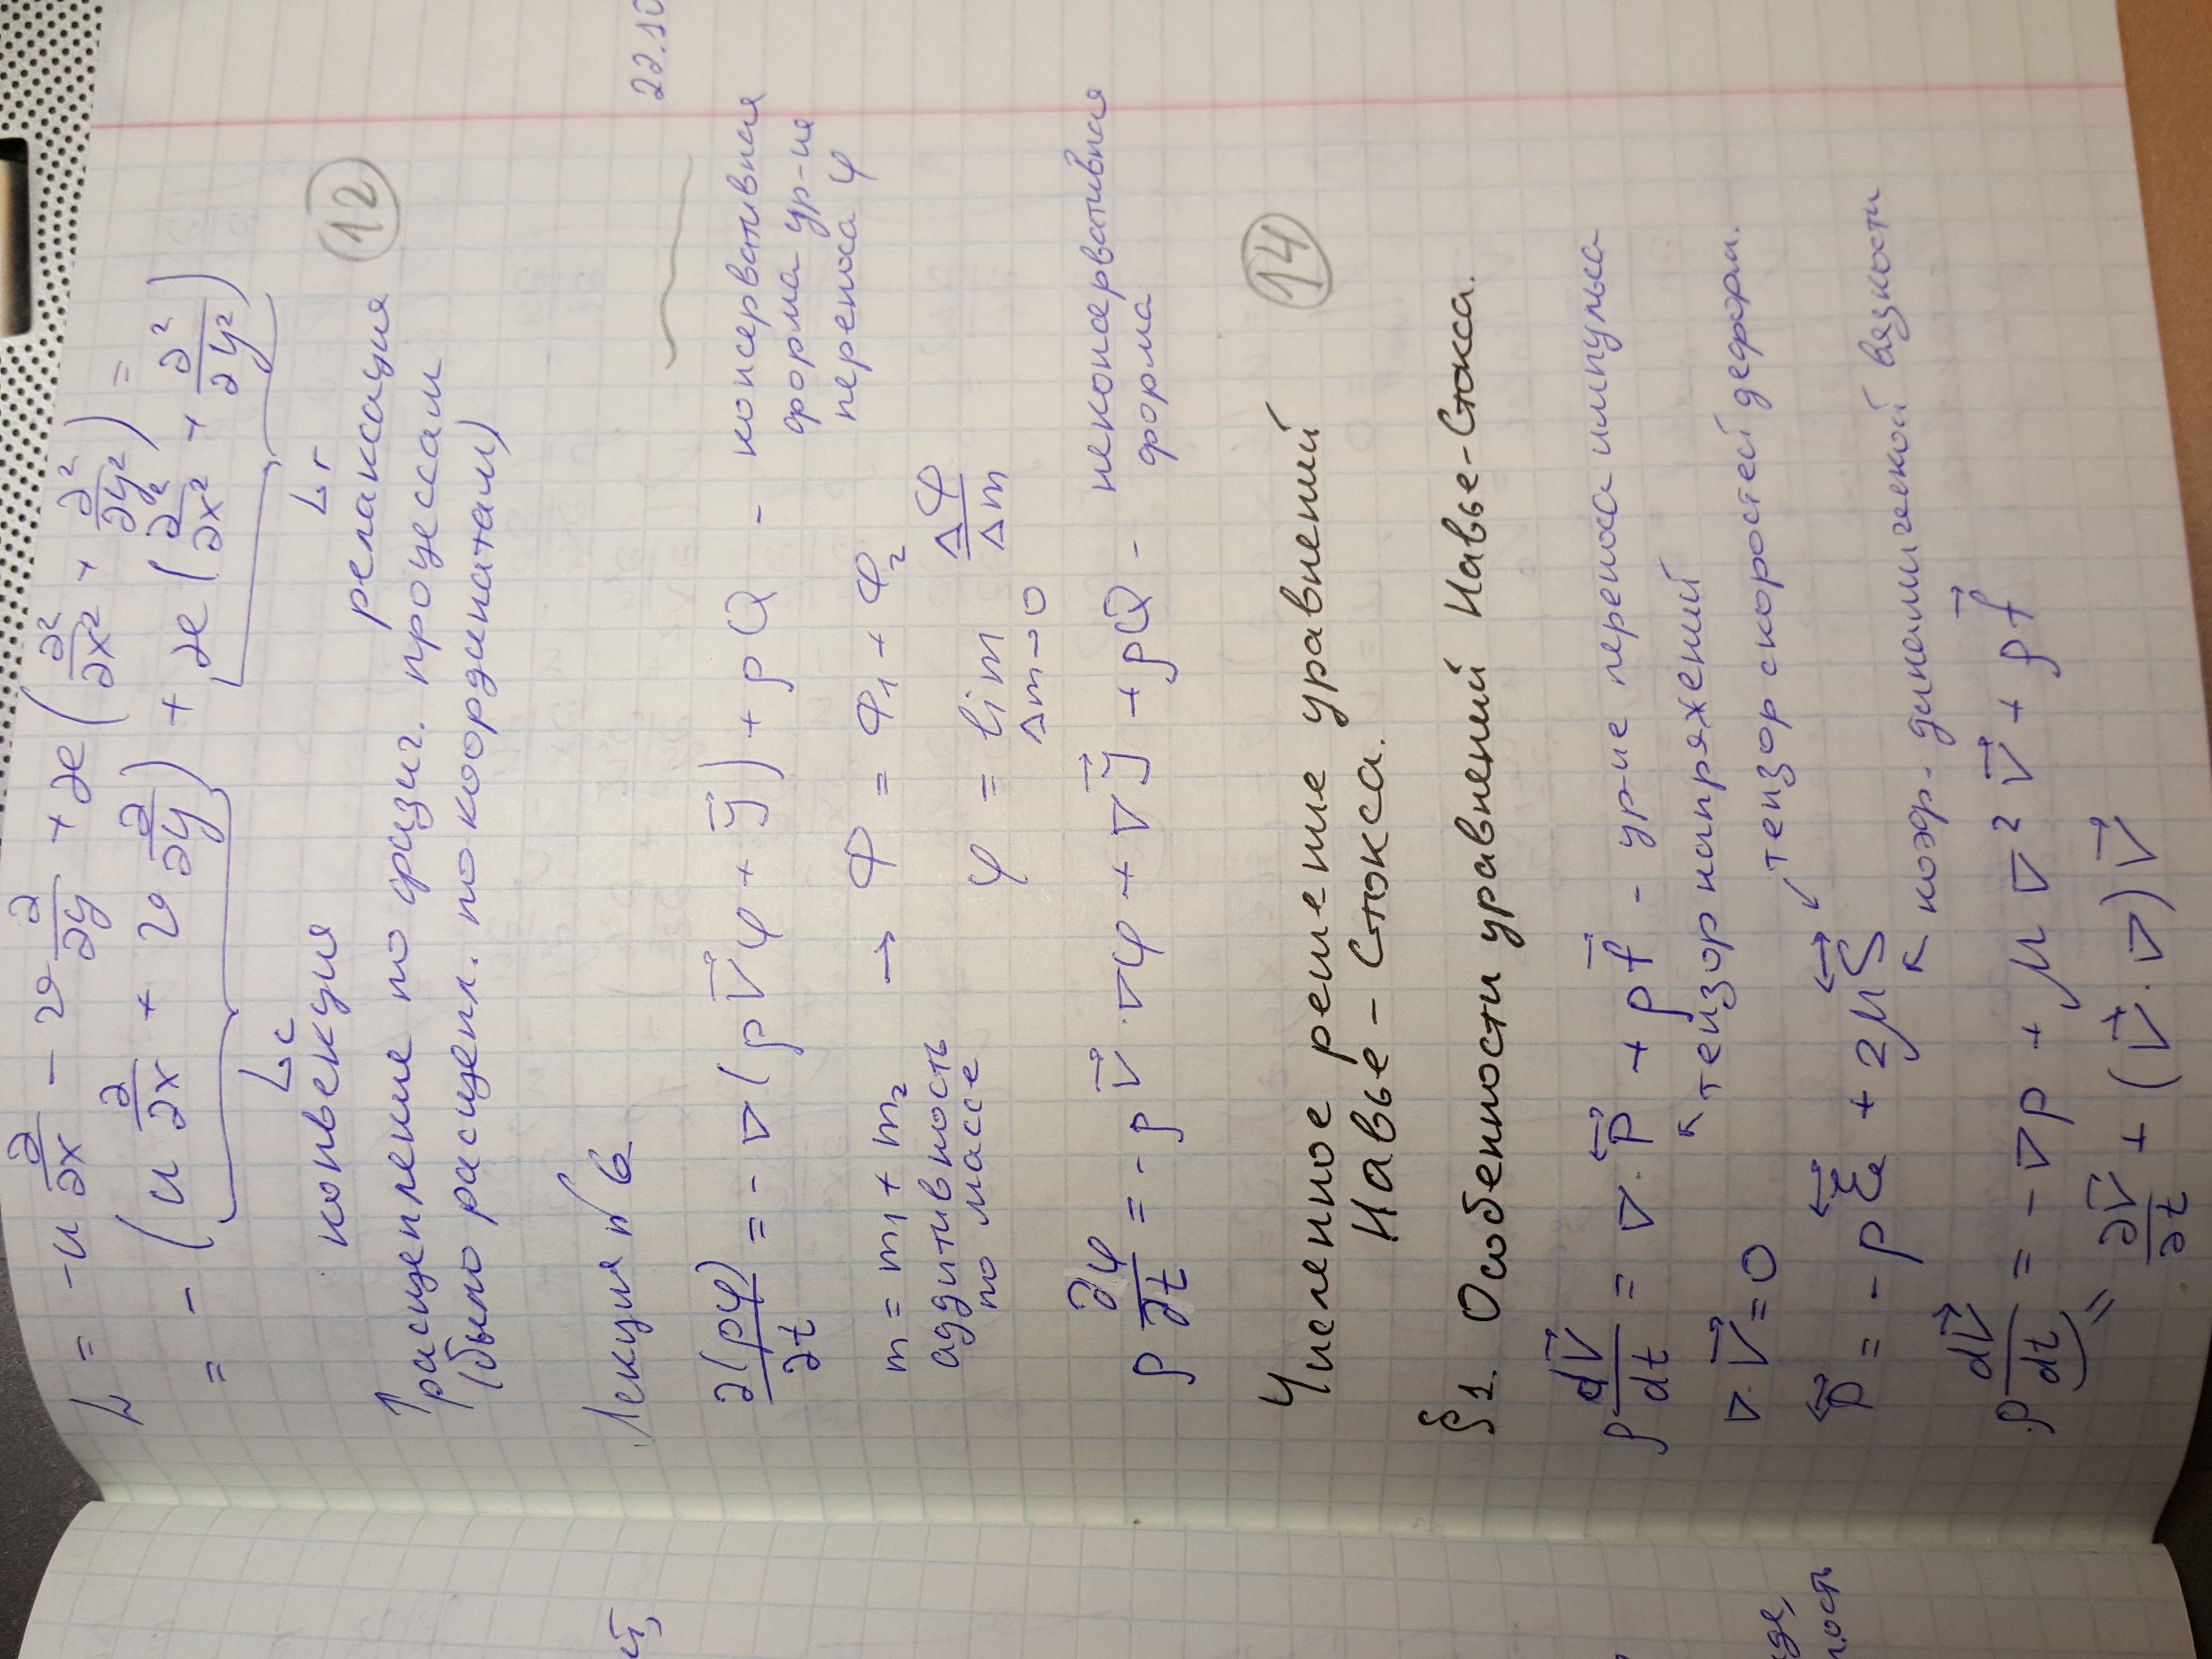 L = -u ∂/∂x - v ∂/∂y + æ (∂²/∂x² + ∂²/∂y²) =
= - (u ∂/∂x + v ∂/∂y) + æ (∂²/∂x² + ∂²/∂y²)
Lc Lr
конвекция релаксация 12
↑ расщепление по физич. процессам
(было расщепл. по координатам)
Лекция №6
22.10
∂(ρφ)/∂t = - ∇(ρV⃗φ + J⃗) + ρQ - консервативная
форма ур-ие
переноса φ
m = m₁ + m₂ → Ф = Ф₁ + Ф₂
аддитивность
по массе
φ = lim Δm→0 ΔФ/Δm
ρ ∂φ/∂t = -ρV⃗·∇φ + ∇J⃗ + ρQ - неконсервативная
форма
14
Численное решение уравнений
Навье-Стокса.
§1. Особенности уравнений Навье-Стокса.
ρ dV⃗/dt = ∇·P⃡ + ρf⃗ - ур-ие переноса импульса
↖ тензор напряжений
∇·V⃗ = 0
↙ тензор скоростей деформ.
P⃡ = -pℰ⃡ + 2μS⃡
↖ коэф. динамической вязкости
ρ dV⃗/dt = -∇p + μ∇²V⃗ + ρf⃗
= ∂V⃗/∂t + (V⃗·∇)V⃗
ет,
где,
ность